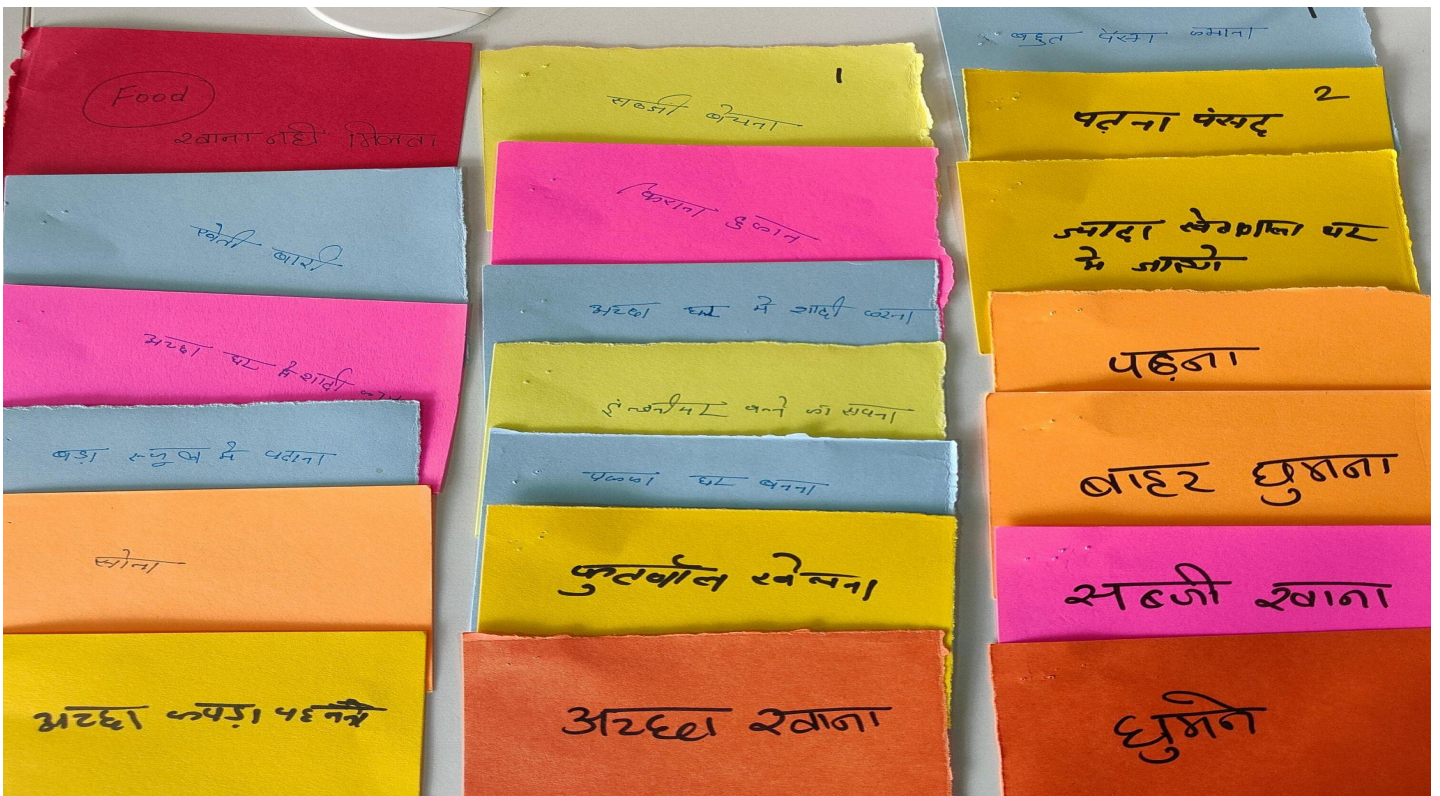 Food
खाना नही मिलता
खेती बारी
अच्छा घर मे शादी करना
बड़ा स्कूल मे पढाना
सोना
अच्छा कपड़ा पहनने
1
सब्जी बेचना
किराना दुकान
अच्छा घर मे शादी करना
इन्जीनीयर बन्ने का सपना
पक्का घर बनना
फुतबॉल खेलना
अच्छा खाना
बहुत पैसा कमाना
2
पढ़ना पंसद
ज्यादा
घर
मे
पढ़ना
बाहर घुमना
सब्जी खाना
घुमने